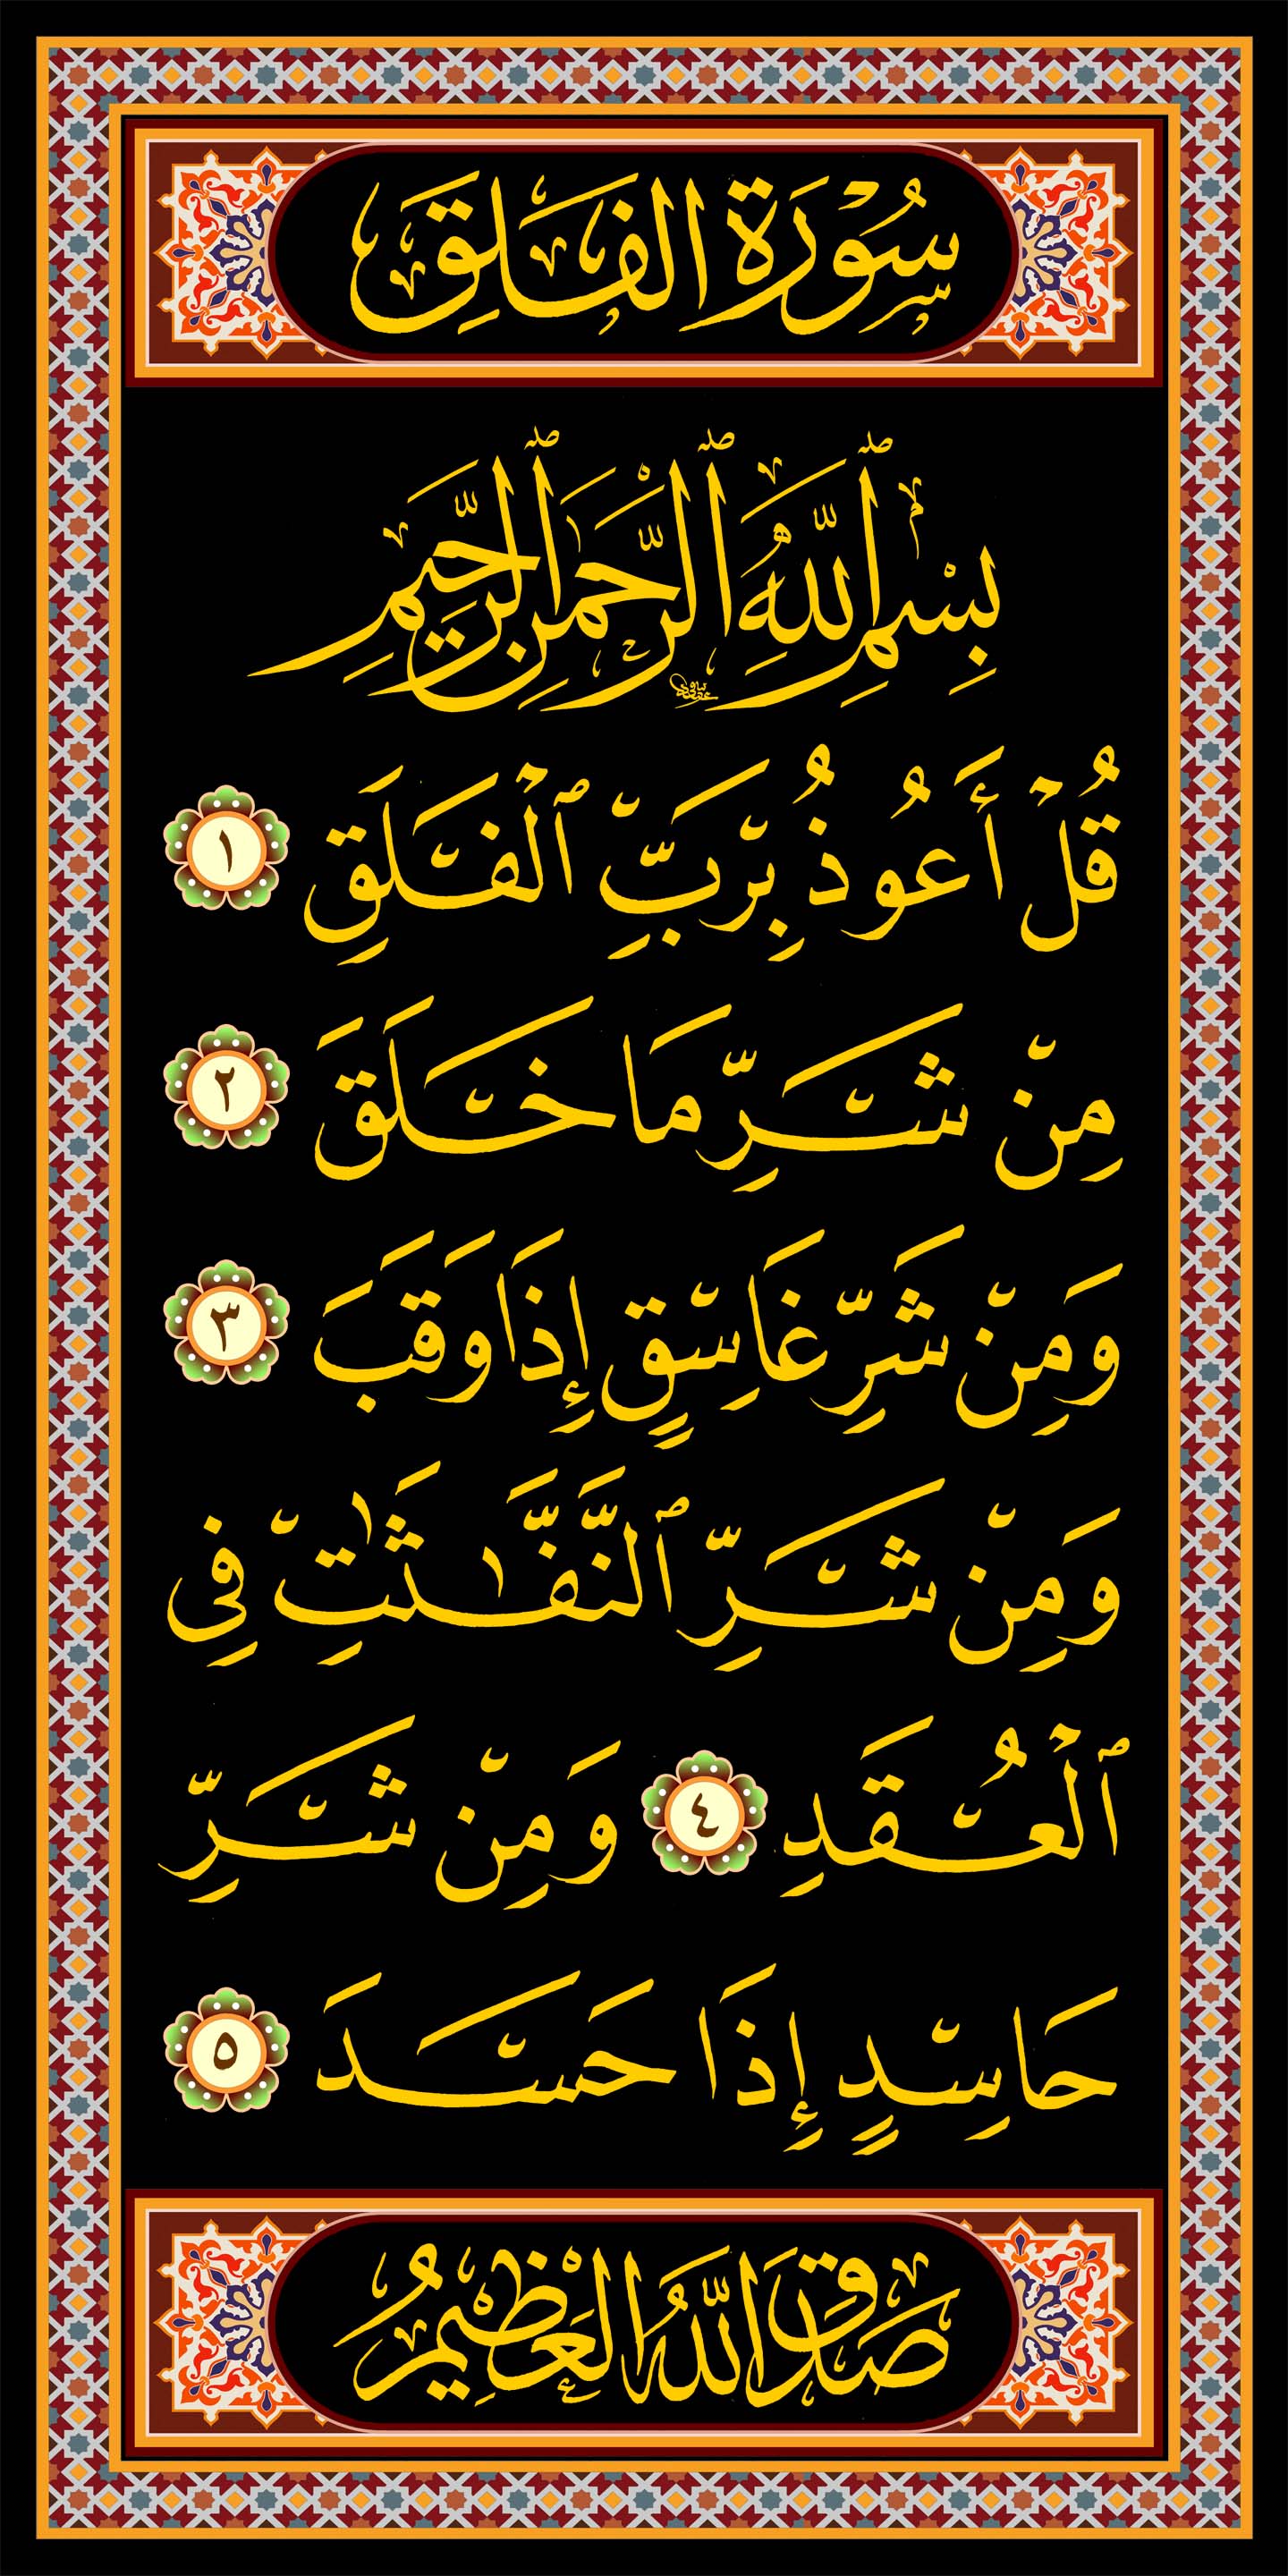 سُوْرَةُ الفَلَقِ
بِسْمِ ٱللَّهِ ٱلرَّحْمَٰنِ ٱلرَّحِيمِ
قُلْ أَعُوذُ بِرَبِّ ٱلْفَلَقِ ١
مِن شَرِّ مَا خَلَقَ ٢
وَمِن شَرِّ غَاسِقٍ إِذَا وَقَبَ ٣
وَمِن شَرِّ ٱلنَّفَّٰثَٰتِ فِى
ٱلْعُقَدِ ٤ وَمِن شَرِّ
حَاسِدٍ إِذَا حَسَدَ ٥
صَدَقَ اللَّهُ العَظِيمُ